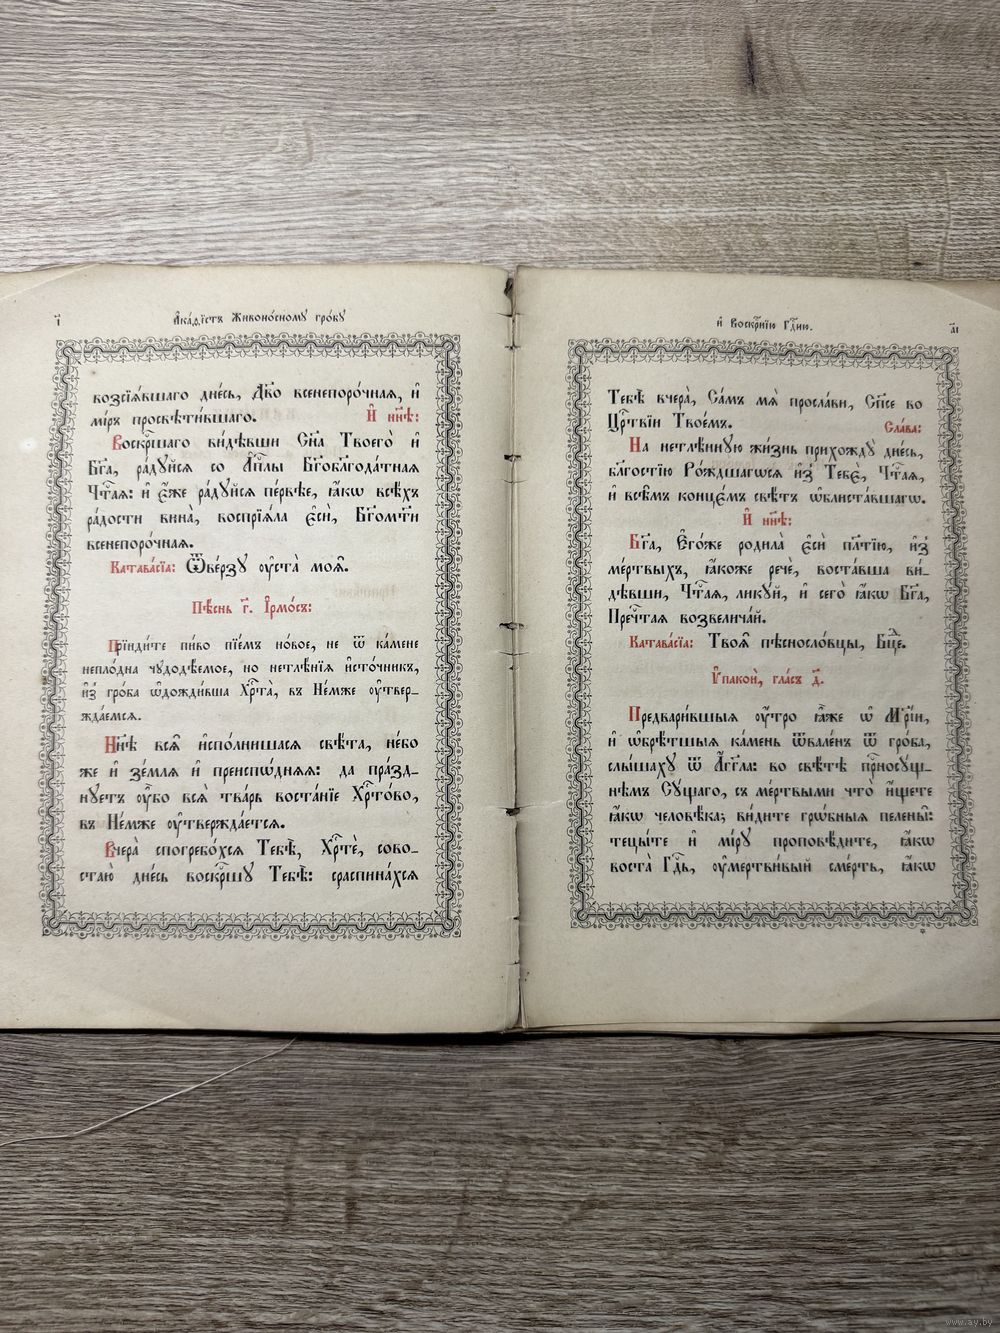 і҃
А҆ка́ѳїстъ Живоно́сному гро́бу
возсїѧ́вшаго дне́сь, Дв҃о всенепоро́чная, и҆
мі́ръ просвѣти́вшаго. И҆ нн҃ѣ:
Воскр҃шаго ви́дѣвши Сн҃а Твоего̀ и҆
Бг҃а, ра́дуйся со А҆пⷭ҇лы Бг҃облгⷣа́тная
Чⷭ҇тая: и҆ є҆́же ра́дуйся пе́рвѣе, ꙗ҆́кѡ всѣ́хъ
ра́дости вина̀, воспрїѧ́ла є҆сѝ, Бг҃ома́ти
всенепоро́чная.
Катава́сїа: Ѿве́рзу ᲂу҆ста̀ моѧ̑.
Пѣ́снь г҃. І҆рмо́съ:
Прїиди́те пи́во пїе́мъ но́вое, не ѿ ка́мене
непло́дна чудодѣ́емое, но нетлѣ́нїя и҆сто́чникъ,
и҆з̾ гро́ба ѡ҆дожди́вша Хрⷭ҇та̀, въ Не́мже ᲂу҆твер-
жда́емся.
Нн҃ѣ всѧ̑ и҆спо́лнишася свѣ́та, не́бо
же и҆ землѧ̀ и҆ преиспѡ́дняя: да пра́зд-
нуетъ ᲂу҆́бо всѧ̀ тва́рь воста́нїе Хрⷭ҇то́во,
въ Не́мже ᲂу҆твержда́ется.
Вчера̀ спогребо́хся Тебѣ̀, Хрⷭ҇тѐ, сово-
стаю̀ дне́сь воскр҃шу Тебѣ̀: сраспина́хся
и҆ Воскрⷭ҇нїю Гдⷭ҇ню.
а҃і
Тебѣ̀ вчера̀, Са́мъ мѧ̀ просла́ви, Сп҃се во
Црⷭ҇твїи Твое́мъ. Сла́ва:
На нетлѣ́нную жи́знь прихожду̀ дне́сь,
бл҃гостїю Ро́ждшагося и҆з̾ Тебє̀, Чⷭ҇тая,
и҆ всѣ̑мъ конце́мъ свѣ́тъ ѡ҆блиста́вшагѡ.
И҆ нн҃ѣ:
Бг҃а, Є҆го́же родила̀ є҆сѝ пло́тїю, и҆з̾
ме́ртвыхъ, ꙗ҆́коже речѐ, воста́вша ви́-
дѣвши, Чⷭ҇тая, лику́й, и҆ сего̀ ꙗ҆́кѡ Бг҃а,
Пречⷭ҇тая возвелича́й.
Катава́сїа: Твоѧ̑ пѣсносло́вцы, Бцⷣе.
Ѵ҆пакоѝ, гла́съ д҃.
Предвари́вшыя ᲂу҆́тро ꙗ҆̀же ѡ҆ Мр҃і́и,
и҆ ѡ҆брѣ́тшыя ка́мень ѿвале́нъ ѿ гро́ба,
слы́шаху ѿ А҆́гг҃ла: во свѣ́тѣ присносу́щ-
нѣмъ Су́щаго, съ ме́ртвыми что̀ и҆́щете
ꙗ҆́кѡ человѣ́ка; ви́дите грѡ́бныя пелены̑:
тецы́те и҆ мі́ру проповѣ́дите, ꙗ҆́кѡ
воста̀ Гдⷭ҇ь, ᲂу҆мертви́вый сме́рть, ꙗ҆́кѡ
www.ay.by